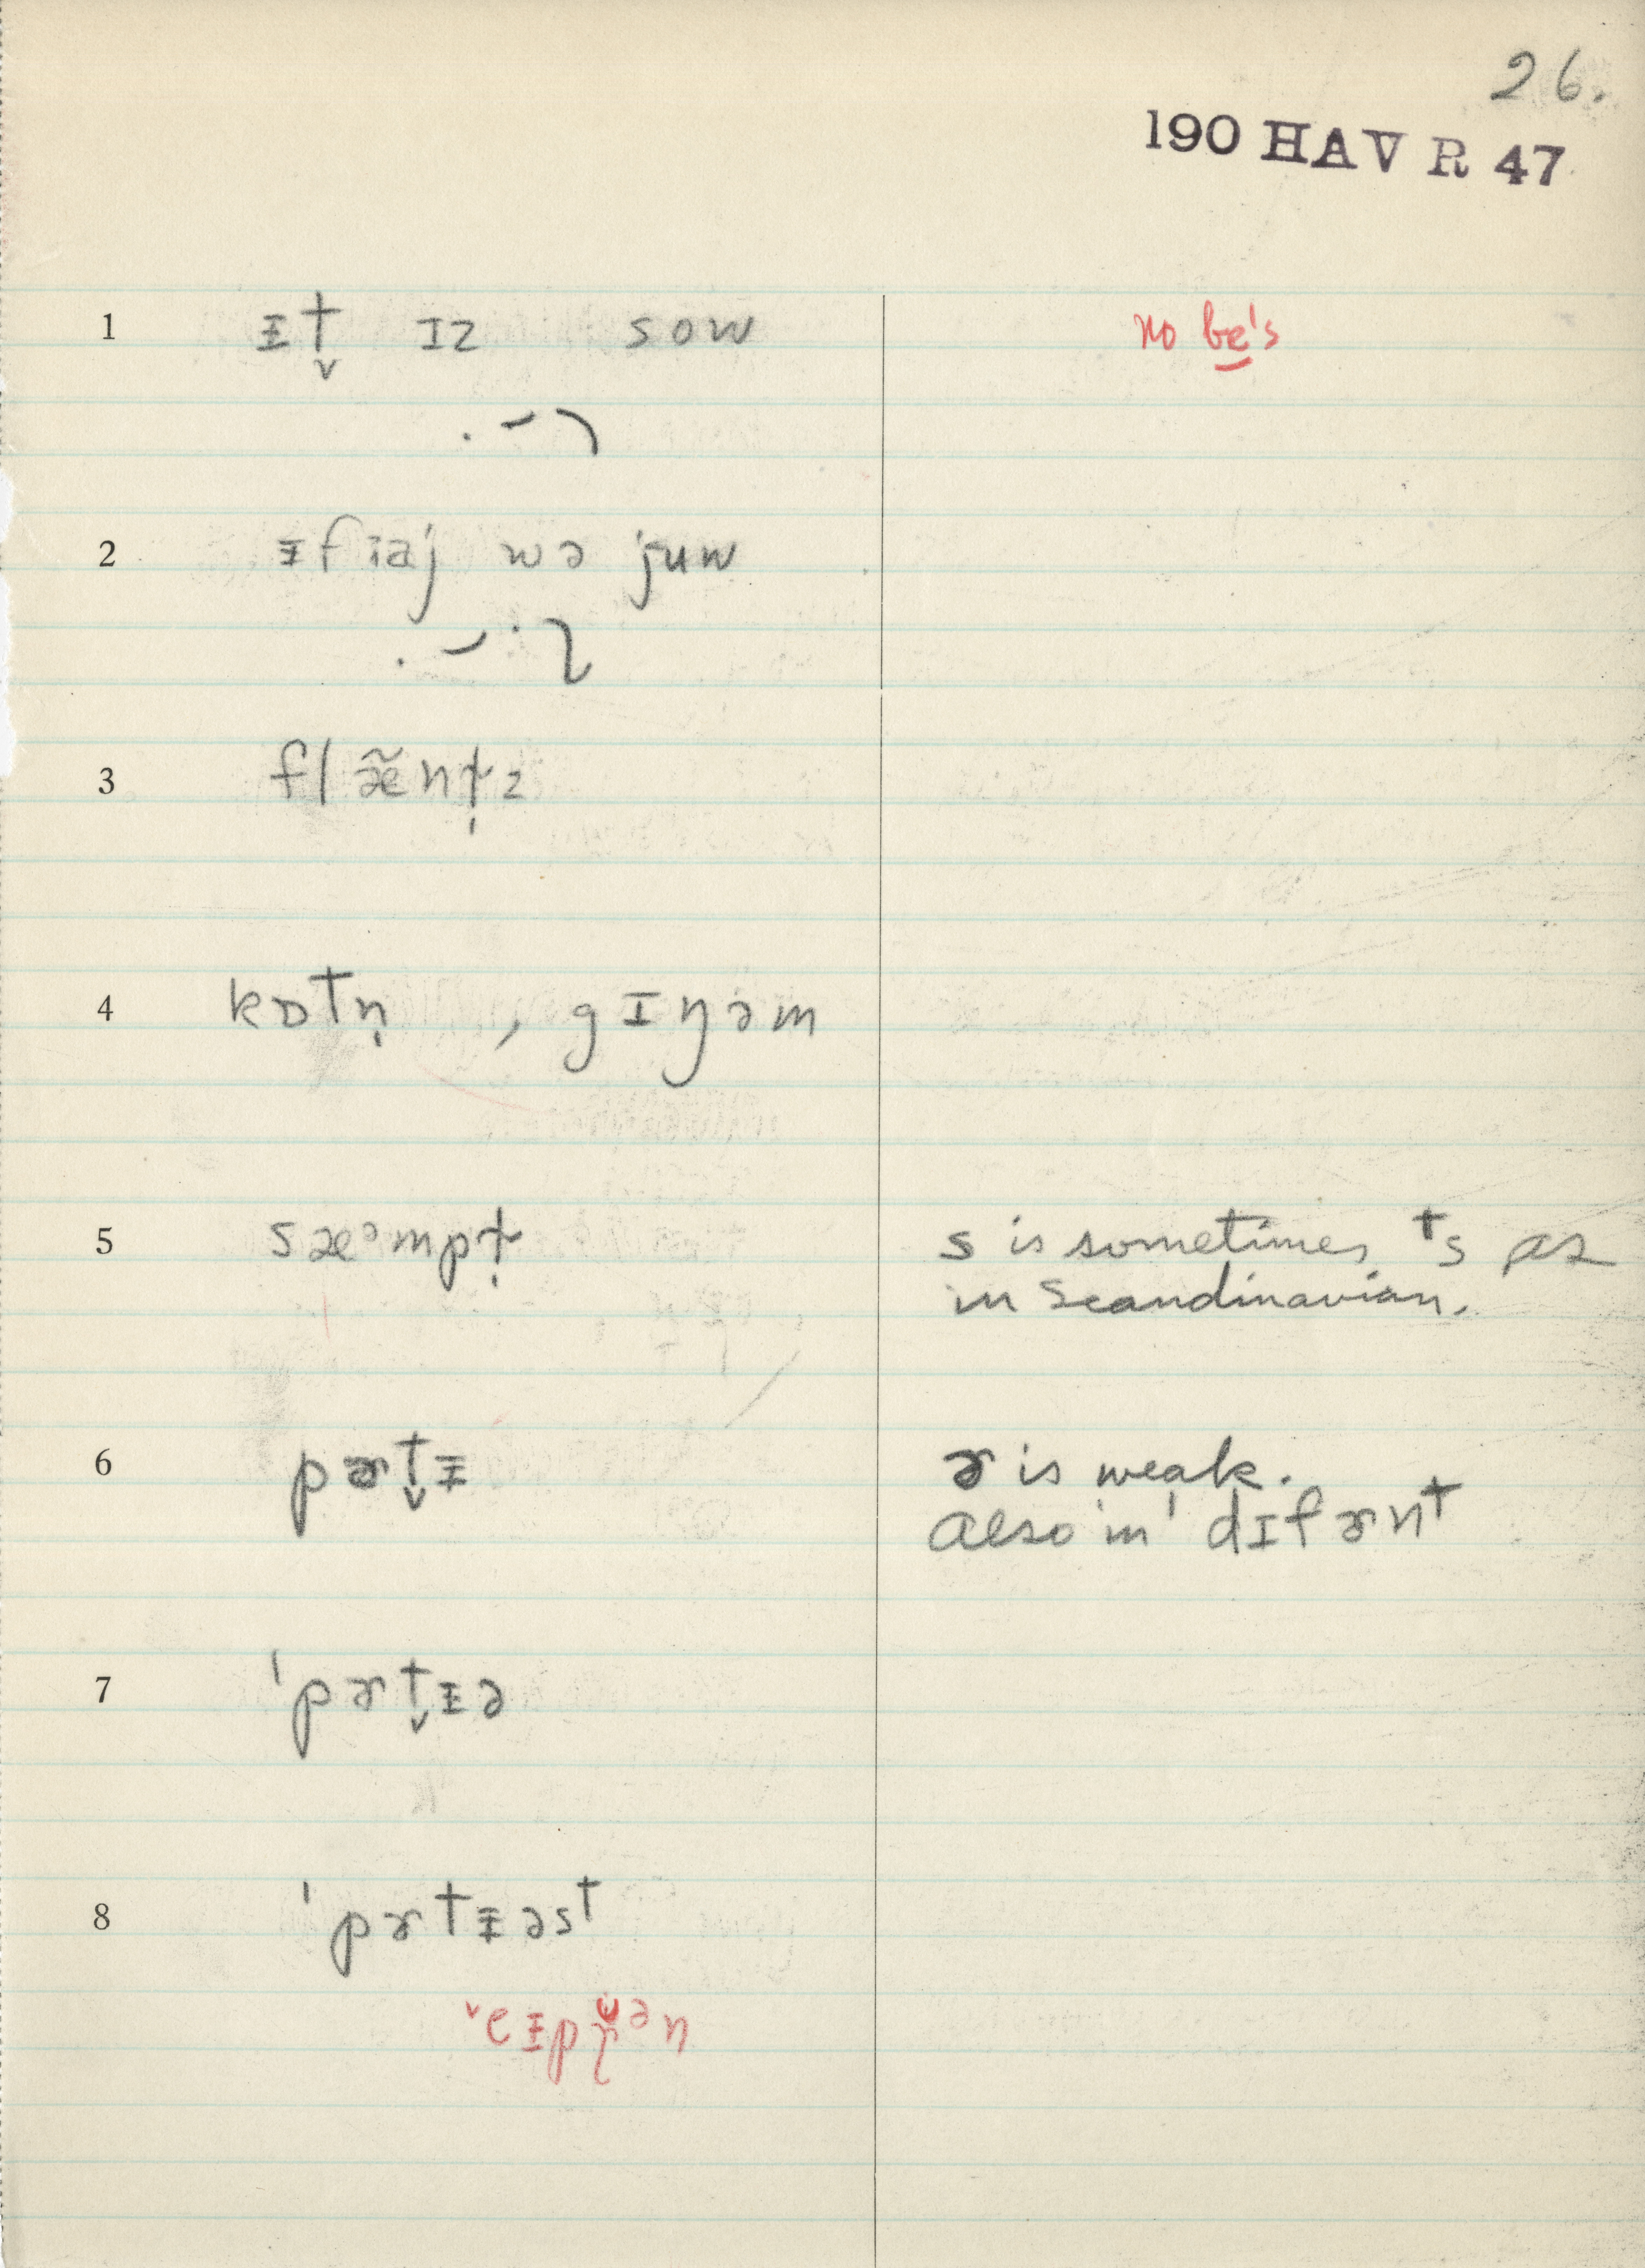 26.
190 HAV R 47
1 ᵻt̬ ɪz sow no be's
2 ᵻf ɪaj wə juw
3 flæ̃nt̩z
4 kɒtn̩ , gɪŋəm
5 sæᵊmpt̩ s is sometimes ᵗs as
in Scandinavian.
6 pɚt̬ᵻ ɚ is weak.
Also in ˈdɪfɚnt
7 ˈpɚt̬ᵻə
8 ˈpɚtᵻəst